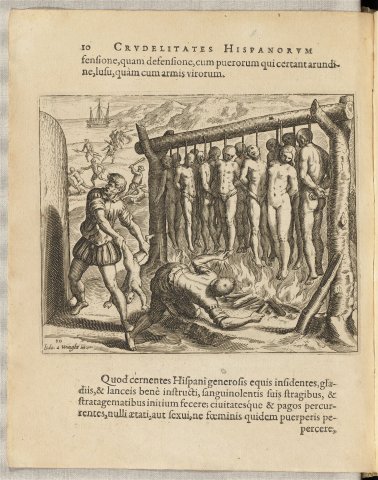 10 CRVDELITATES HISPANORVM
fensione, quam defensione, cum puerorum qui certant arundi-
ne, lusu, quàm cum armis virorum.
Quod cernentes Hispani generosis equis insidentes, gla-
diis, & lanceis benè instructi, sanguinolentis suis stragibus, &
stratagematibus initium fecere; ciuitatesque & pagos percur-
rentes, nulli ætati, aut sexui, ne fœminis quidem puerperis pe-
percere,